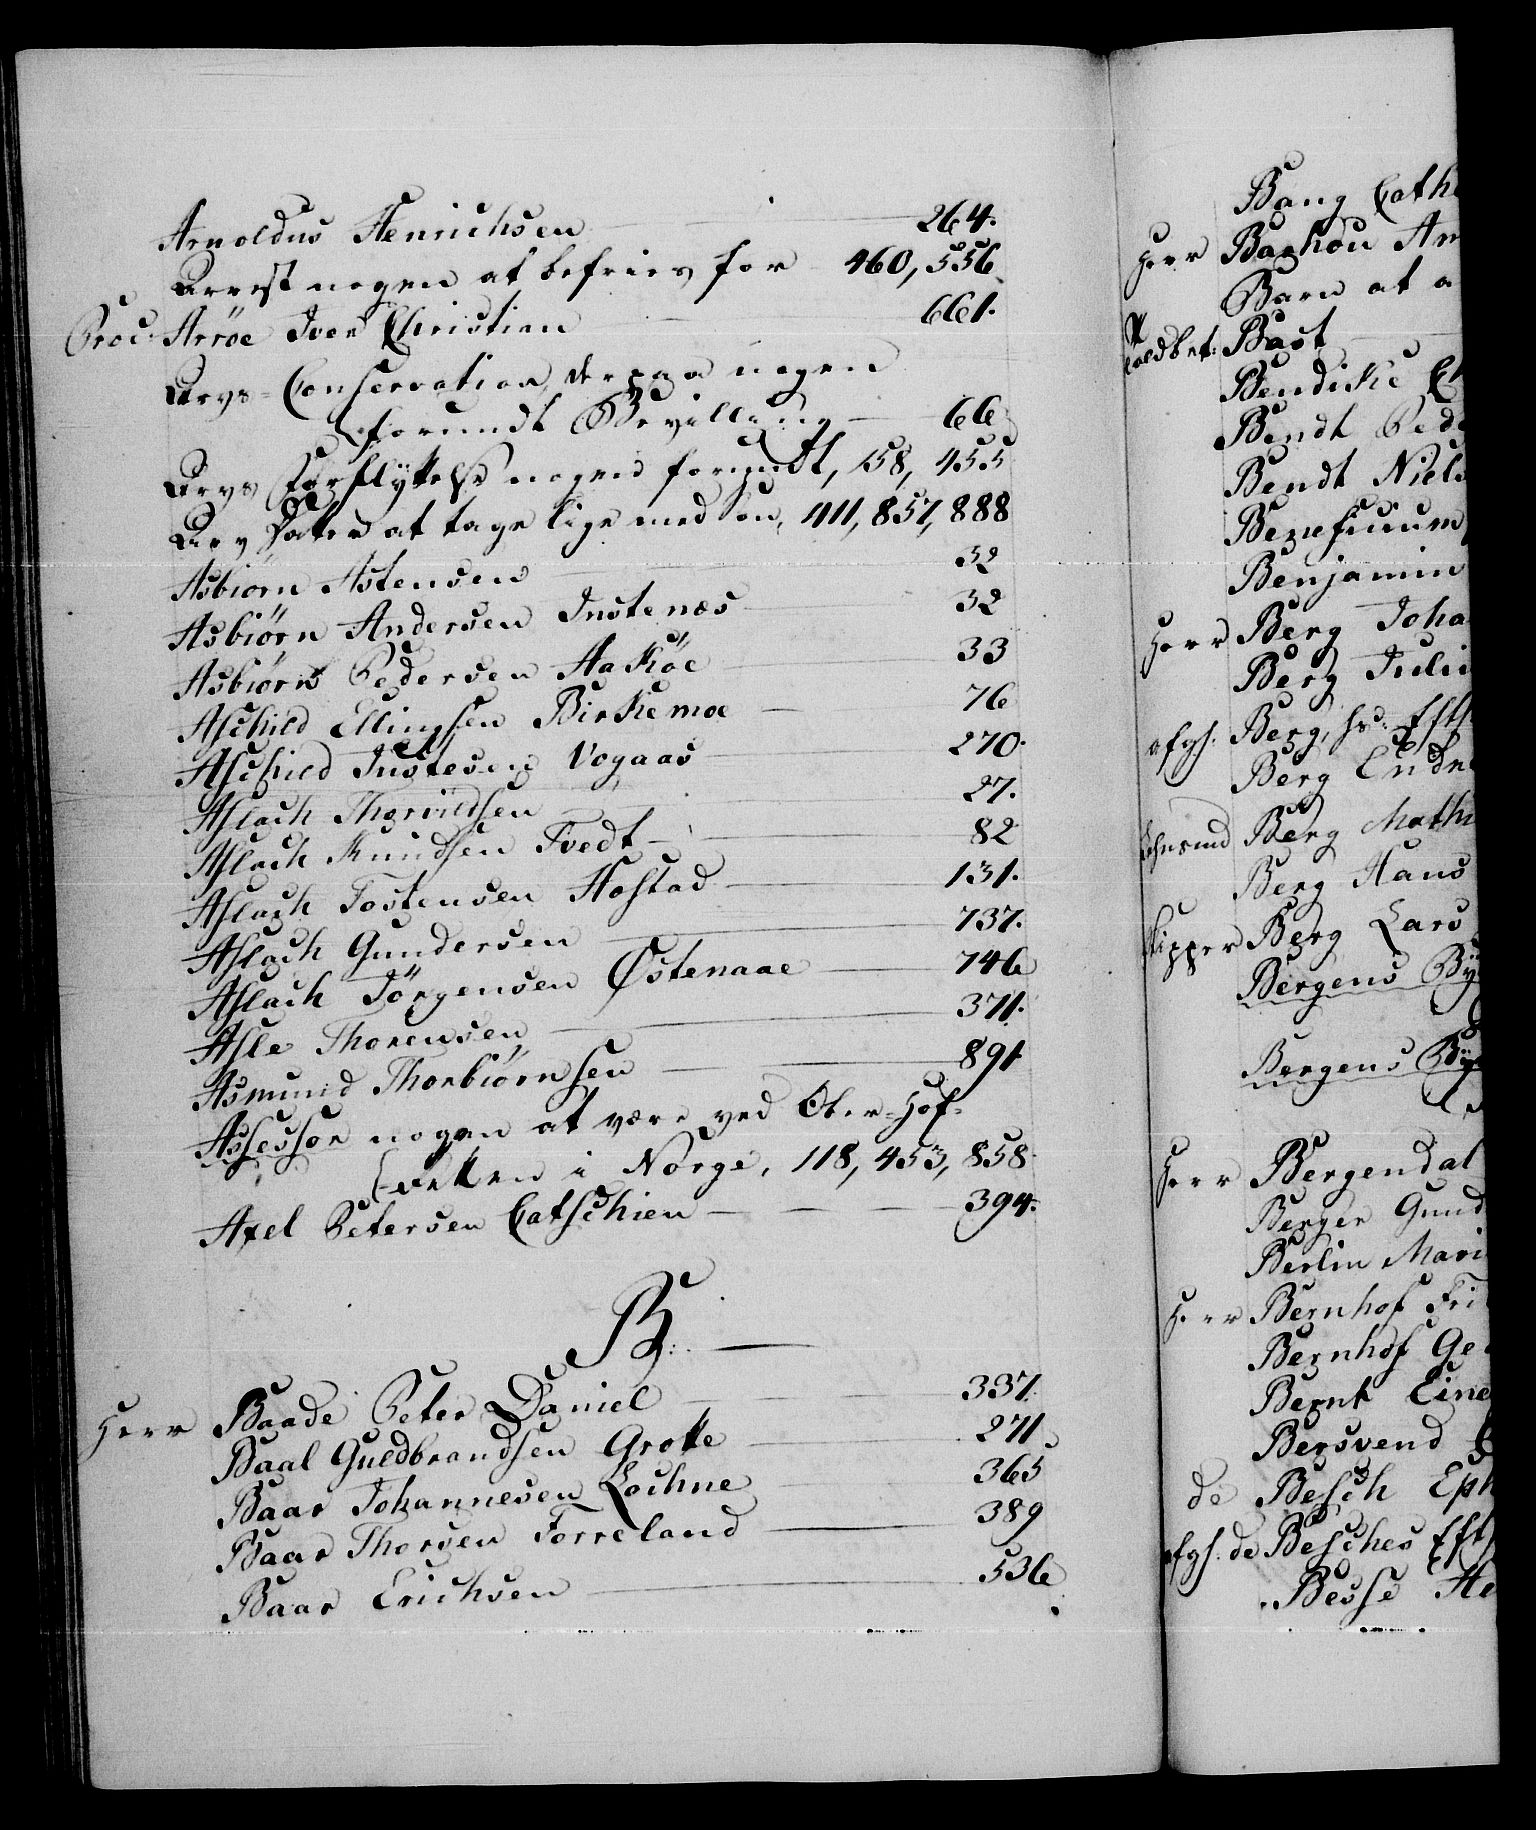 Arnoldus Henrichsen 264.
Arrest nogen at befries for 460, 556
Proc: Arröe Iver Christian 661.
Arvs-Conservation, derpaa nogen
forundt Bevilling 66
Arvs Forflyttelse nogen forundt, 158, 455
Arv Datter at tage lige med Søn, 411, 857, 888
Asbiorn Astensen 32
Asbiörn Andersen Instenæs 32
Asbiörn Pedersen Aaköe 33
Aschild Ellingsen Birkemoe 76
Aschild Justesen Vogaas 270.
Aslach Thorvildsen 27.
Aslach Knudsen Tvedt 82
Aslach Tostensen Hostad 131.
Aslach Gundersen 737.
Aslach Törgensen Østenaae 746
Asle Thorensen 371.
Asmund Thorbiörnsen 891
Assessor nogen at være ved Ober-Hof-
retten i Norge, 118, 453, 858
Axel Petersen Catschien 394.
B.
Herr Baade Peter Daniel 337.
Baal Guldbrandsen Grotte 271
Baar Johannesen Lochne 365
Baar Thorsen Forreland 389
Baar Erichsen 536
Bang Cath
Herr Barhou Am
Barn at a
Toldbet: Bast
Bendike El
Bendt Ped
Bendt Niels
Beneficium
Benjamin
Herr Berg Joha
Berg Juli
afgl. Berg, hs: Efts
Berg Endr
Berg Mathi
Berg Hans
Skipper Berg Lars
Bergens By
Bergens By
Herr Bergendal
Berger Gund
Berlin Mari
Herr Bernhof Fri
Bernhof Ge
Bernt Eine
Bersvend
de Besch Eph
afgl. de Besches Eft
Besse He